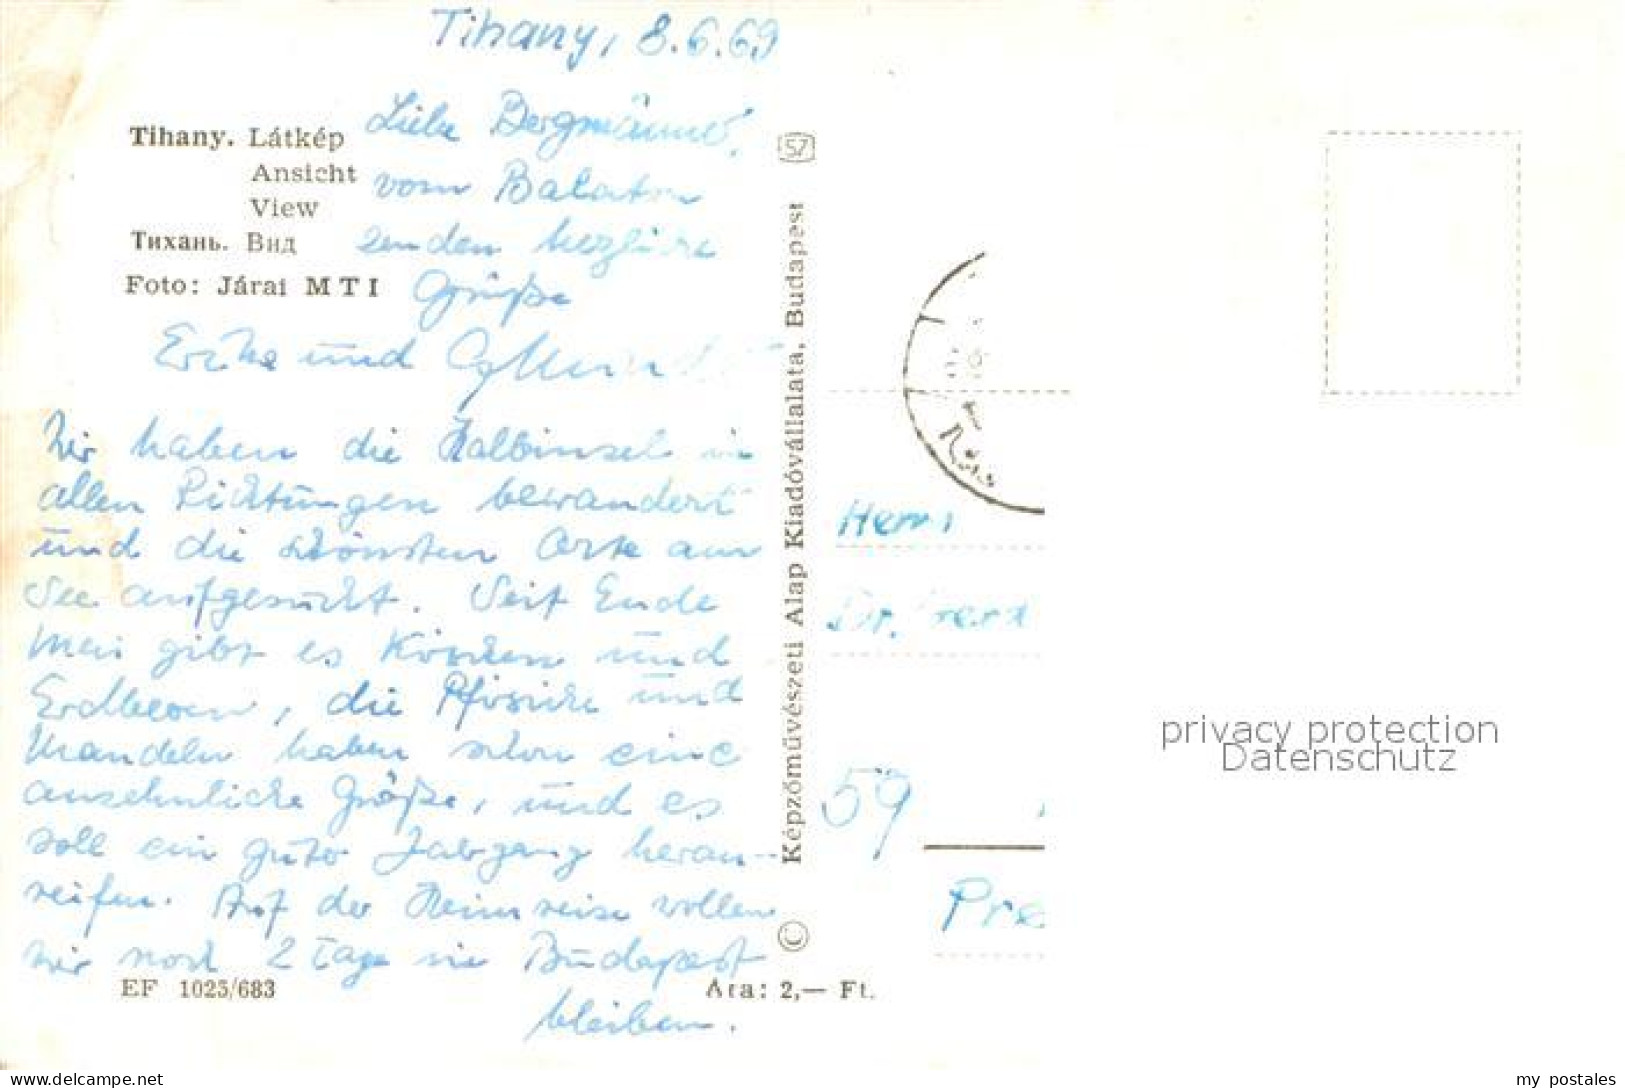 Tihany, 8.6.69
Tihany. Látkép
Ansicht
View
Тихань. Вид
Foto: Járai MTI
Liebe
vom Balaton
senden herzliche
Grüße
und
Wir haben die Halbinsel in
allen Richtungen bewandert
und die schönsten Orte am
See aufgesucht. Seit Ende
Mai gibt es Kirschen und
Erdbeeren, die Pfirsiche und
Mandeln haben schon eine
ansehnliche Größe, und es
soll ein guter Jahrgang heran-
reifen. Auf der Heimreise wollen
wir noch 2 Tage in Budapest
bleiben.
EF 1025/683
Ára: 2,— Ft.
© Képzőművészeti Alap Kiadóvállalata, Budapest
SZ
Herrn
Dr. Gerd
59
Pre
privacy protection
Datenschutz
www.delcampe.net
my_postales